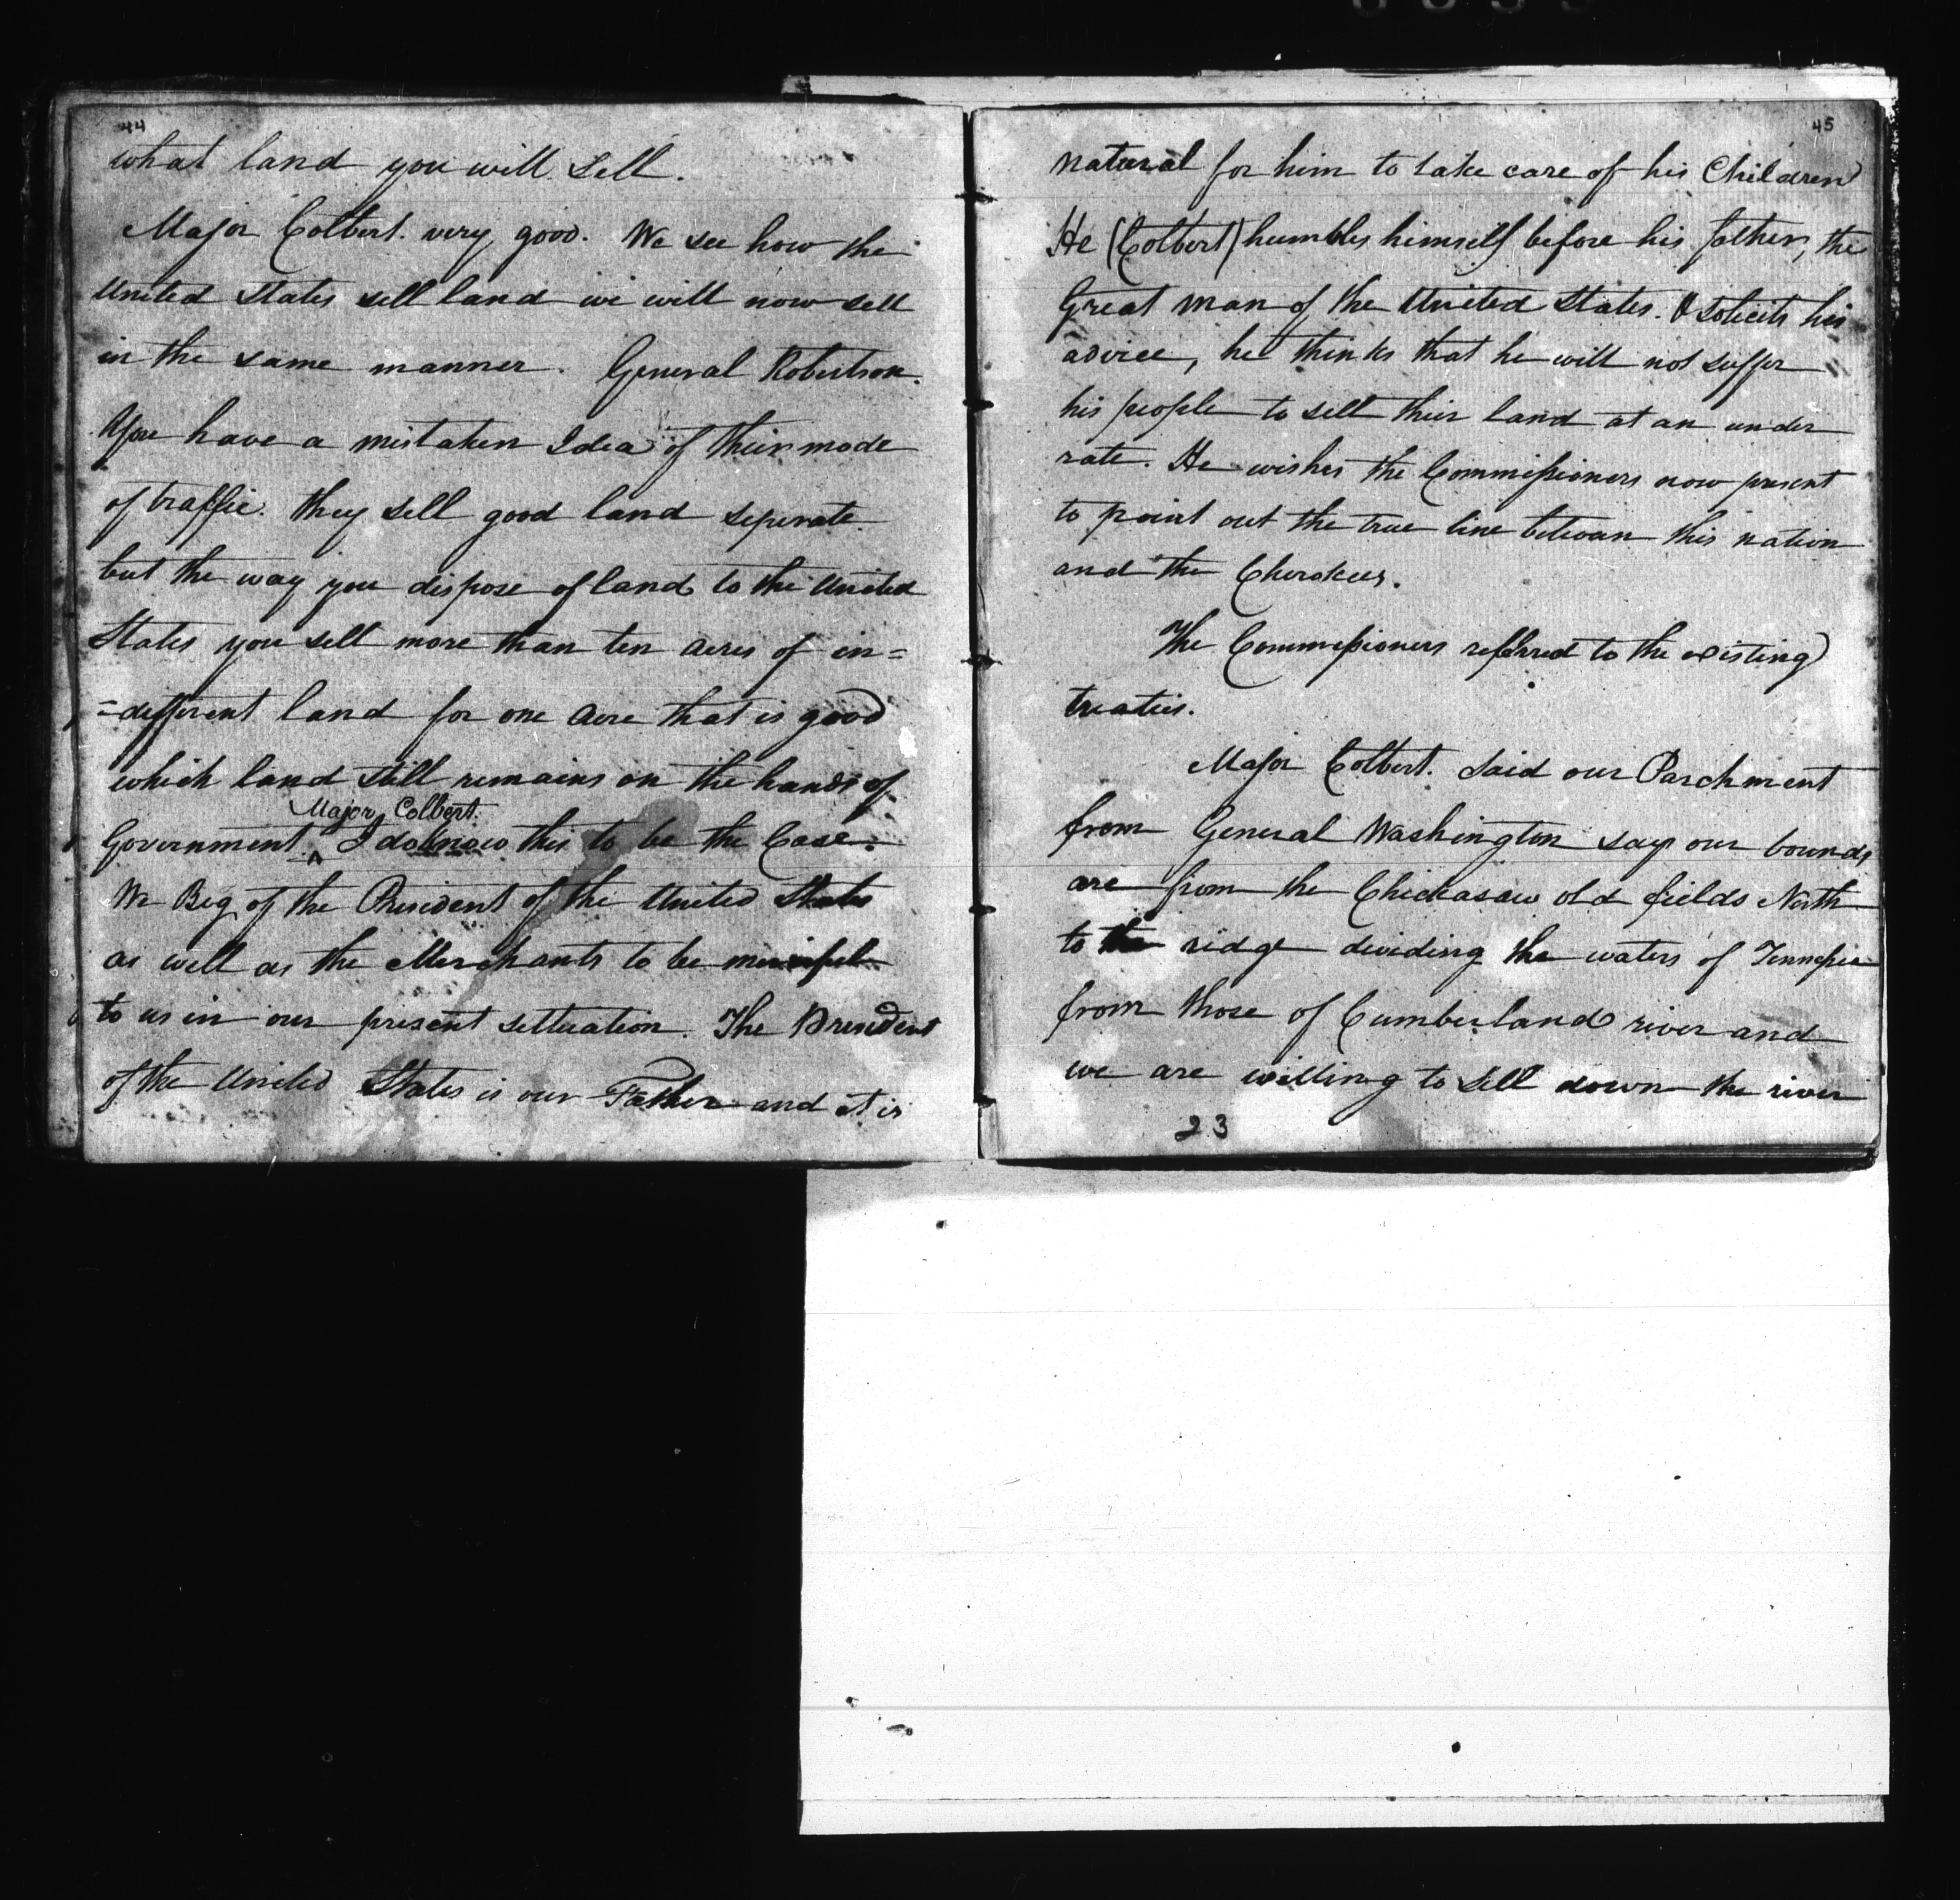 44
what land you will sell.
Major Colbert. very good. We see how the
United States sell land we will now sell
in the same manner. General Robertson.
You have a mistaken Idea of their mode
of traffic. they sell good land seperate
but the way you dispose of land to the United
States you sell more than ten acres of in=
=different land for one acre that is good
which land still remains on the hands of
Major Colbert.
Government ^ I do know this to be the Case.
We Beg of the President of the United States
as well as the Merchants to be merciful
to us in our present settuation. The President
of the United States is our Father and it is
45
natural for him to take care of his Children
He (Colbert) humbles himself before his father, the
Great man of the United States. & solicits his
advice, he thinks that he will not suffer
his people to sell their land at an under
rate. He wishes the Commissioners now present
to point out the true line between this nation
and the Cherokees.
The Commissioners referred to the existing
treaties.
Major Colbert. Said our Parchment
from General Washington say our bounds
are from the Chickasaw old fields North
to the ridge dividing the waters of Tennessee
from those of Cumberland river and
we are willing to sell down the river
23